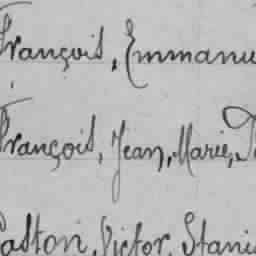 François, Emmanu
François, Jean, Marie,
Gaston, Victor, Stanis